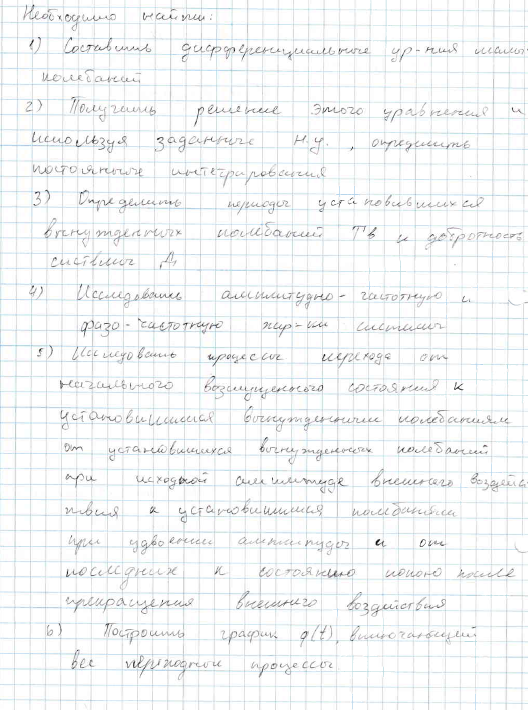 Необходимо найти:
1) Составить дифференциальные ур-ния малых
колебаний
2) Получить решение этого уравнения и
используя заданные н.у., определить
постоянные интегрирования
3) Определить периоды установившихся
вынужденных колебаний Тв и добротность
системы Д
4) Исследовать амплитудно-частотную и
фазо-частотную хар-ки системы
5) Исследовать процессы перехода от
начального возмущенного состояния к
установившимся вынужденным колебаниям
от установившихся вынужденных колебаний
при исходной амплитуде внешнего воздейс
твия к установившимся колебаниям
при удвоении амплитуды и от
последних к состоянию покоя после
прекращения внешнего воздействия
6) Построить график q(t), включающей
все переходные процессы